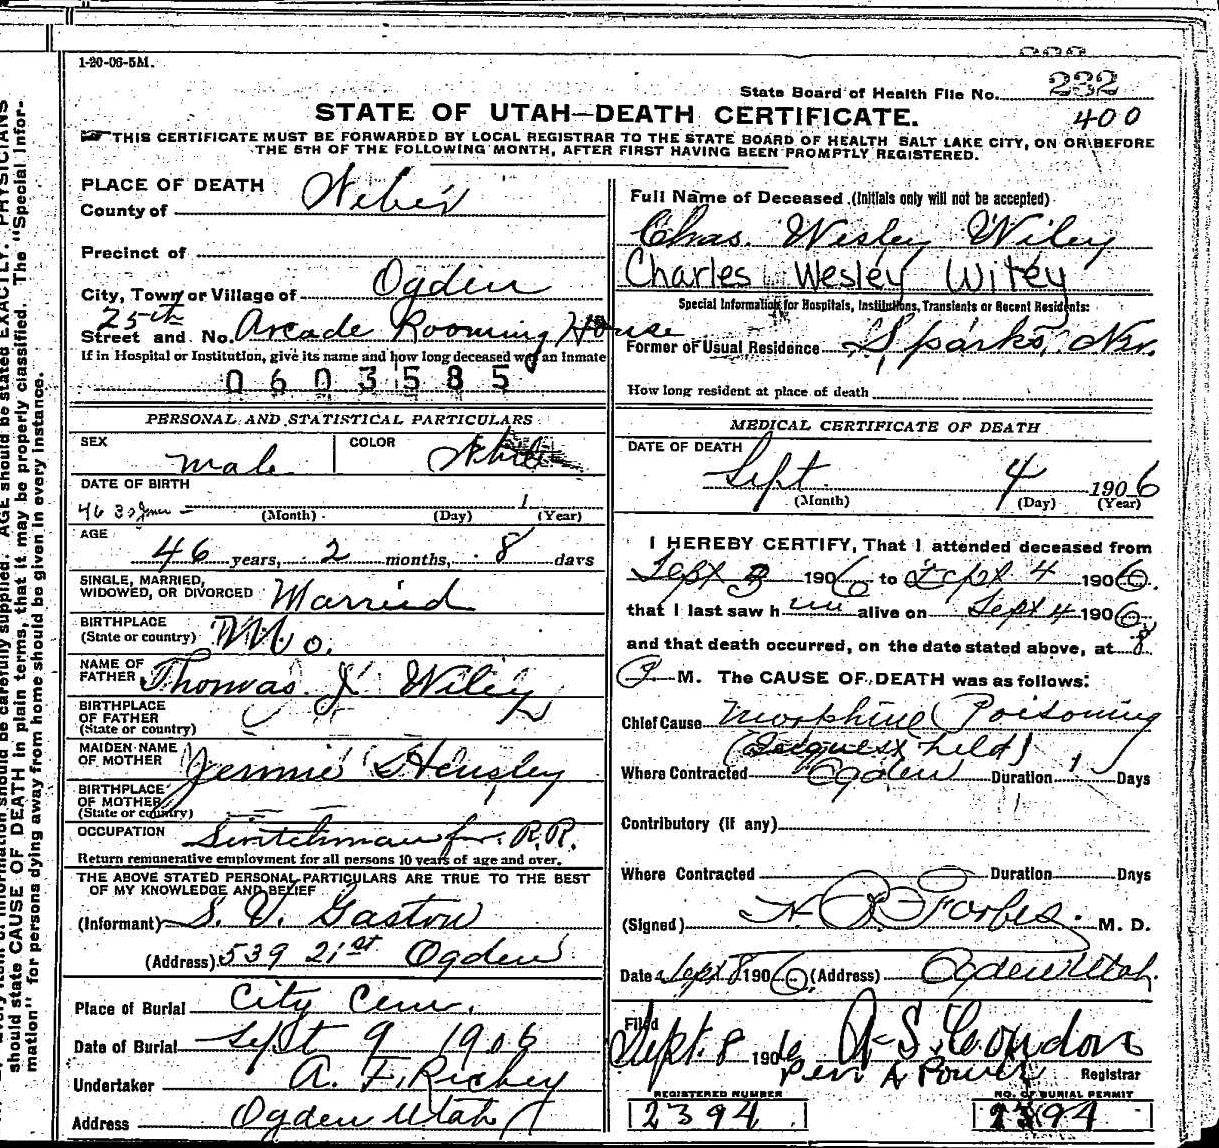 1-20-06-5M.
State Board of Health File No. 232
400
STATE OF UTAH—DEATH CERTIFICATE.
THIS CERTIFICATE MUST BE FORWARDED BY LOCAL REGISTRAR TO THE STATE BOARD OF HEALTH SALT LAKE CITY, ON OR BEFORE
THE 5TH OF THE FOLLOWING MONTH, AFTER FIRST HAVING BEEN PROMPTLY REGISTERED.
PLACE OF DEATH
County of Weber
Precinct of
City, Town or Village of Ogden
25th
Street and No. Arcade Rooming House
If in Hospital or Institution, give its name and how long deceased was an inmate
0603585
PERSONAL AND STATISTICAL PARTICULARS
SEX male COLOR White
DATE OF BIRTH
(Month) (Day) (Year)
AGE
46 years, 2 months, 8 days
SINGLE, MARRIED,
WIDOWED, OR DIVORCED Married
BIRTHPLACE
(State or country) Mo.
NAME OF
FATHER Thomas J. Wiley
BIRTHPLACE
OF FATHER
(State or country)
MAIDEN NAME
OF MOTHER Jennie Hensley
BIRTHPLACE
OF MOTHER
(State or country)
OCCUPATION Switchman for R.R.
Return remunerative employment for all persons 10 years of age and over.
THE ABOVE STATED PERSONAL PARTICULARS ARE TRUE TO THE BEST
OF MY KNOWLEDGE AND BELIEF
(Informant) S. V. Gaston
(Address) 539 21st Ogden
Place of Burial City Cem.
Date of Burial Sept 9 1906
Undertaker A. F. Richey
Address Ogden Utah
Full Name of Deceased (Initials only will not be accepted)
Chas. Wesley Wiley
Charles Wesley Wiley
Special Information for Hospitals, Institutions, Transients or Recent Residents:
Former or Usual Residence Sparks, Nev.
How long resident at place of death
MEDICAL CERTIFICATE OF DEATH
DATE OF DEATH
Sept 4 1906
(Month) (Day) (Year)
I HEREBY CERTIFY, That I attended deceased from
Sept 3 1906 to Sept 4 1906.
that I last saw him alive on Sept 4 1906
and that death occurred, on the date stated above, at 8
P. M. The CAUSE OF DEATH was as follows:
Chief Cause Morphine Poisoning
(Inquest held)
Where Contracted Ogden Duration 1 Days
Contributory (if any)
Where Contracted Duration Days
(Signed) H. B. Forbes. M. D.
Date Sept 8 1906 (Address) Ogden Utah.
Filed
Sept. 8 1906 A. S. Condon
per A Power Registrar
REGISTERED NUMBER
2394
NO. OF BURIAL PERMIT
2394
AGE should be stated EXACTLY. PHYSICIANS
should state CAUSE OF DEATH in plain terms, that it may be properly classified. The "Special Infor-
mation" for persons dying away from home should be given in every instance.